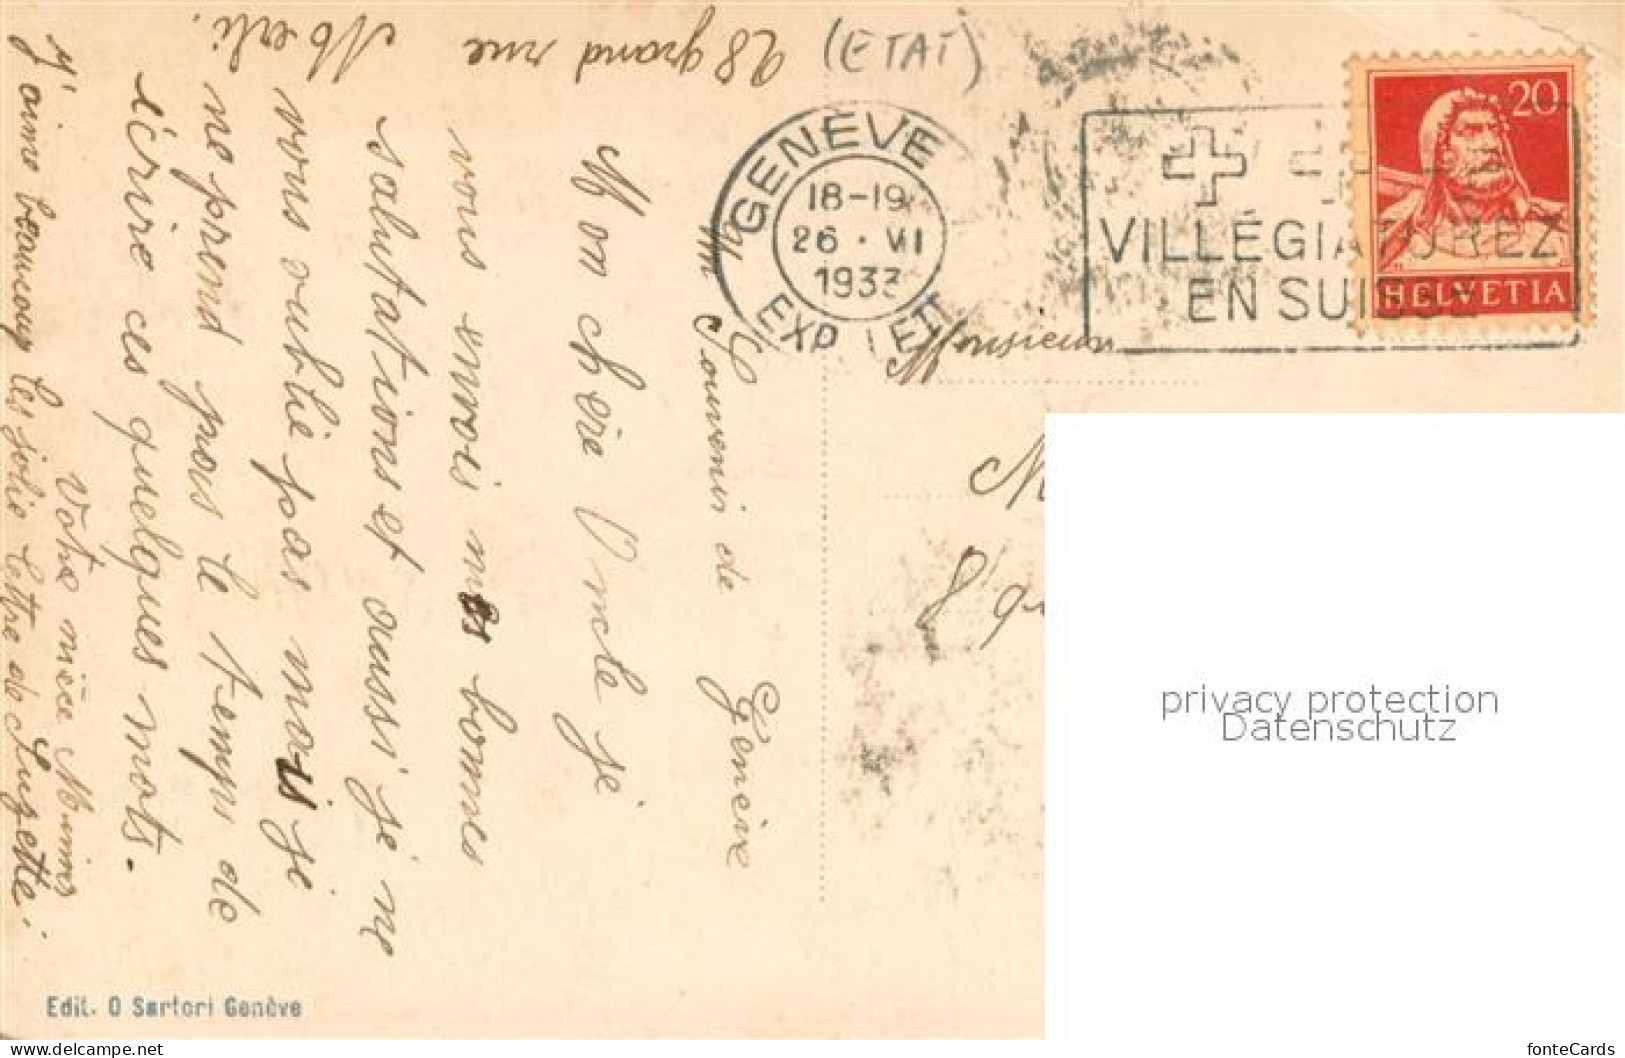 (ETAT)
GENÈVE
18-19
26 · VII
1933
EXP LETT
VILLÉGIATUREZ
EN SUISSE
20
HELVETIA
Monsieur
Un Souvenir de Genève
Mon chère Oncle je
vous envoi mes bonnes
salutations et aussi je ne
vous oublie pas mois je
ne prend pas le temps de
écrire ces quelques mots.
Votre nièce Mimi
J'aime beaucoup les jolie lettre de Suzette.
28 grand rue
Edit. O Sartori Genève
privacy protection
Datenschutz
www.delcampe.net
fonteCards